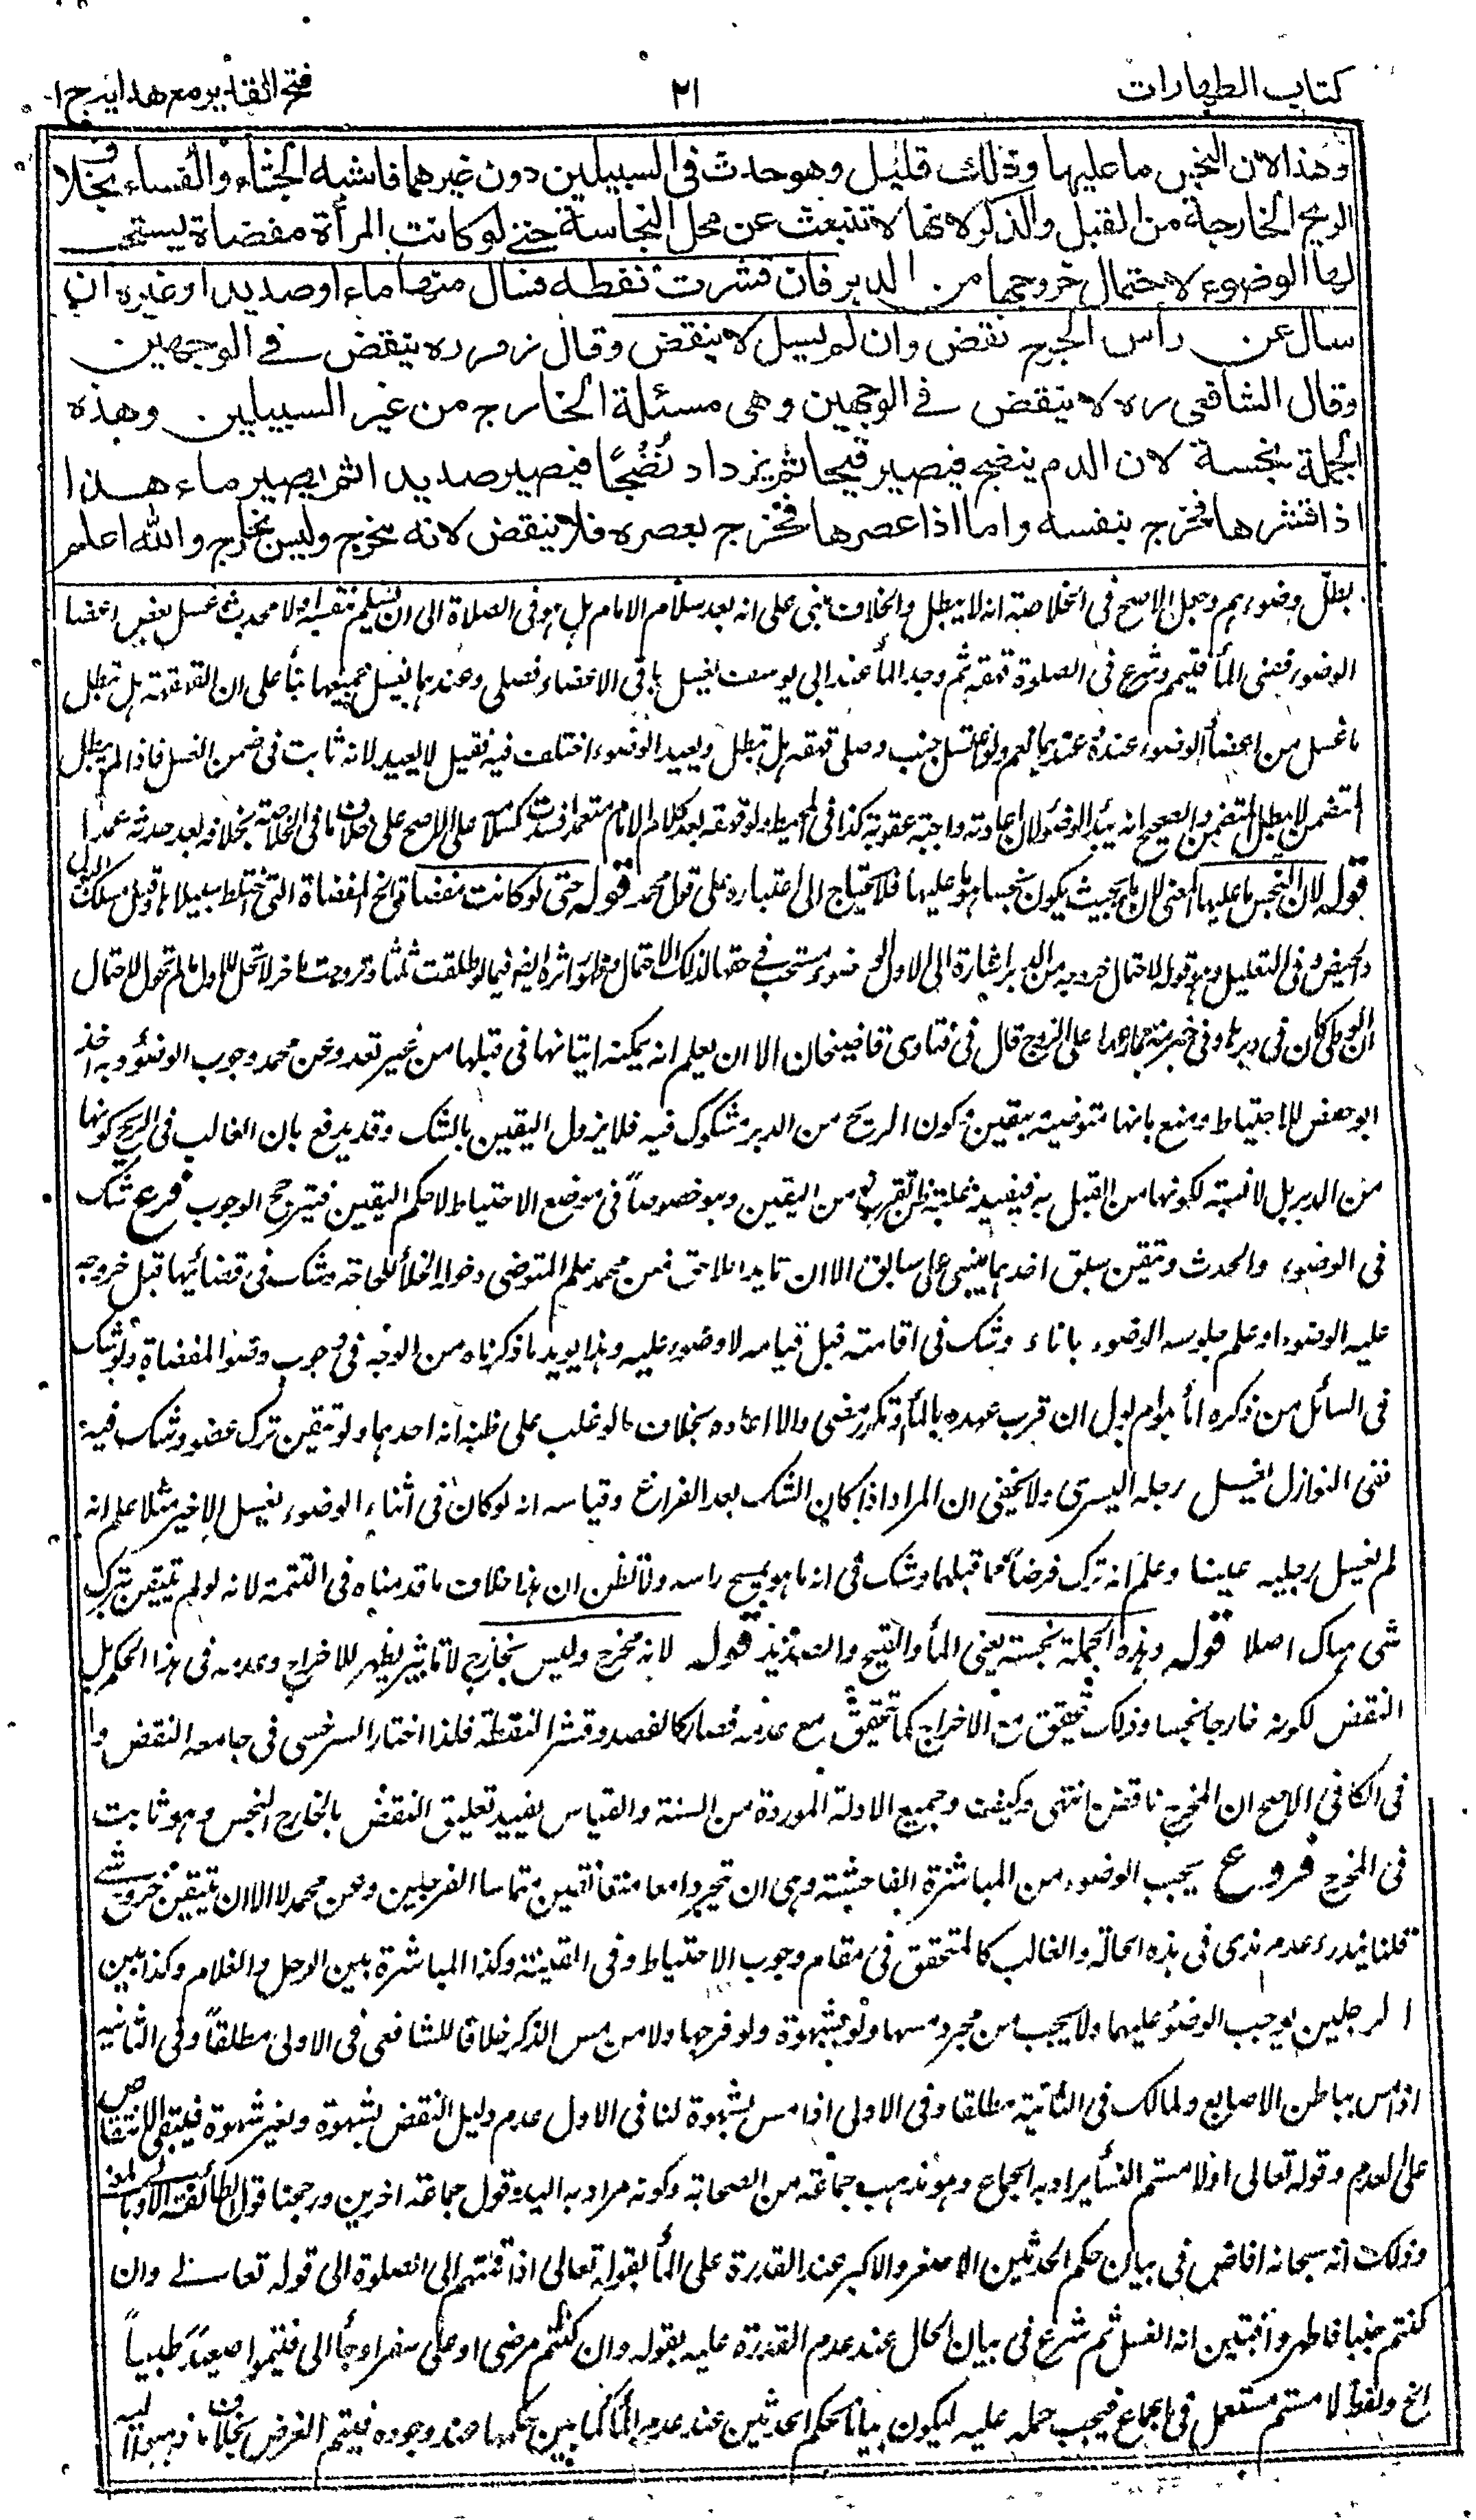 كتاب الطهارات ٢١ فتح القدير مع هدايه ج ١
وهذا لان النجس ما عليها وذلك قليل وهو حدث فى السبيلين دون غيرهما فاشبه الجشاء والفساء بخلاف
الريح الخارجة من القبل والذكر لانها لا تنبعث عن محل النجاسة حتى لو كانت المرأة مفضاة يستحب
لها الوضوء لاحتمال خروجها من الدبر فان قشرت نفطه فسال منها ماء او صديد او غيره ان
سال عن راس الجرح نقض وان لم يسل لا ينقض وقال زفر ره ينقض فى الوجهين
وقال الشافعى ره لا ينقض فى الوجهين وهى مسئلة الخارج من غير السبيلين وهذه
الجملة نجسة لان الدم ينضج فيصير قيحا ثم يزداد نُضْجًا فيصير صديدا ثم يصير ماء هذا
اذا قشرها فخرج بنفسه واما اذا عصرها فخرج بعصره فلا ينقض لانه مخرج وليس بخارج والله اعلم
يبطل وضوءهم وجعل الاصح فى الخلاصة انه لا يبطل والخلاف مبنى على انه بعد سلام الامام هل هو فى الصلاة الى ان يسلم بنفسه اولا محدث غسل بعض اعضاء
الوضوء ففنى الماء فتيمم وشرع فى الصلوة فقهقه ثم وجد الماء عند ابى يوسف يغسل باقى الاعضاء فصلى وعندهما يغسل جميعها بناء على ان القهقهة هل تبطل
ما غسل من اعضاء الوضوء عنده عندهما نعم ولو اغتسل جنب وصلى فقهقه هل تبطل ويعيد الوضوء اختلف فيه فقيل لا يعيد لانه ثابت فى ضمن الغسل فاذا لم يبطل
المتضمن لا يبطل المتضمن والصحيح انه يعيد الوضوء لان اعادته واجبة عقوبة كذا فى المحيط ولو قهقه بعد كلام الامام متعمدا فسدت كسلامه على الاصح على خلاف ما فى الخلاصة بخلافه بعد حدثه عمدا
قوله لان النجس ما عليها المعنى لان ما بحيث يكون نجسا هو ما عليها فلا يحتاج الى اعتباره على قول محمد قوله حتى لو كانت مفضاة الخ المفضاة التى اختلط سبيلاها وقيل مسلك البول
والحيض وفى التعليل وهو قوله لاحتمال خروجه من الدبر اشارة الى الاول الوضوء مستحب فى حقها لذلك الاحتمال وظهر اثره ايضا فيما لو طلقت ثلثا وتزوجت باخر لا تحل للاول ما لم تحبل لاحتمال
ان الوطى كان فى دبرها وفى حرمة جماعها على الزوج قال فى فتاوى قاضيخان الا ان يعلم انه يمكنه اتيانها فى قبلها من غير تعد وعن محمد وجوب الوضوء وبه اخذ
ابو حفص للاحتياط ومنع بانها متوضية بيقين وكون الريح من الدبر مشكوك فيه فلا يزول اليقين بالشك وقد يدفع بان الغالب فى الريح كونها
من الدبر بل لا نسبة لكونها من القبل به فيفيد غلبة ظن تقرب من اليقين وهو خصوصا فى موضع الاحتياط له حكم اليقين فيترجح الوجوب فرع شك
فى الوضوء والحدث وتيقن سبق احدهما يبنى على سابق الا ان تايد اللاحق فعن محمد علم المتوضى دخوله الخلاء للحاجة وشك فى قضائها قبل خروجه
عليه الوضوء او علم جلوسه للوضوء باناء وشك فى اقامته قبل قيامه لا وضوء عليه وهذا يويد ما ذكرناه من الوجه فى وجوب وضوء المفضاة ولو شك
فى السائل من ذكره أماء هو ام بول ان قرب عهده بالماء او تكرر مضى والا اعاده بخلاف ما لو غلب على ظنه انه احدهما ولو تيقن ترك عضو وشك فيه
ففى النوازل يغسل رجله اليسرى ولا يخفى ان المراد اذا كان الشك بعد الفراغ وقياسه انه لو كان فى أثناء الوضوء يغسل الاخير مثلا علم انه
لم يغسل رجليه عينا وعلم انه ترك فرضا مما قبلهما وشك فى انه ما هو يمسح راسه ولا تظن ان هذا خلاف ما قدمناه فى التتمة لانه لو لم تيقن بترك
شى هناك اصلا قوله وهذه الجملة نجسة يعنى الماء والقيح والصديد قوله لانه مخرج وليس بخارج لا تاثير يظهر للاخراج وعدمه فى هذا الحكم بل
النقض لكونه خارجا نجسا وذلك يتحقق مع الاخراج كما يتحقق مع عدمه فصار كالفصد وقشر النفطة فلذا اختار السرخسى فى جامعه النقض وا
فى الكافى الاصح ان المخرج ناقض انتهى وكيف وجميع الادلة الموردة من السنة والقياس يفيد تعليق النقض بالخارج النجس وهو ثابت
فى المخرج فروع يجب الوضوء من المباشرة الفاحشة وهى ان تجردا معا متعانقين متماسا الفرجين وعن محمد لا الا ان يتيقن خروج شى
قلنا يندر عدم مذى فى هذه الحالة والغالب كالمتحقق فى مقام وجوب الاحتياط وفى القنية وكذا المباشرة بين الرجل والغلام وكذا بين
الرجلين يوجب الوضوء عليهما ولا يجب من مجرد مسها ولو بشهوة ولو فرجها ولا من مس الذكر خلافا للشافعى فى الاولى مطلقا وفى الثانية
اذا مس بباطن الاصابع ولمالك فى الثانية مطلقا وفى الاولى اذا مس بشهوة لنا فى الاول عدم دليل النقض بشهوة وبغير شهوة فيبقى الانتقاض
على العدم وقوله تعالى او لامستم النساء يراد به الجماع وهو مذهب جماعة من الصحابة وكونه مرادا به اليد قول جماعة اخرين ورجحنا قول الطائفة الاولى
وذلك انه سبحانه افاض فى بيان حكم الحدثين الاصغر والاكبر عند القدرة على الماء بقوله تعالى اذا قمتم الى الصلوة الى قوله تعالى وان
كنتم جنبا فاطهروا فبين انه الغسل ثم شرع فى بيان الحال عند عدم القدرة عليه بقوله وان كنتم مرضى او على سفر او جاء الى فتيمموا صعيدا طيبا
الخ ولفظ لامستم مستعمل فى الجماع فيجب حمله عليه ليكون بيانا لحكم الحدثين عند عدم الماء كما بين حكمهما عند وجوده فيتم الغرض بخلاف ما ذهبوا اليه